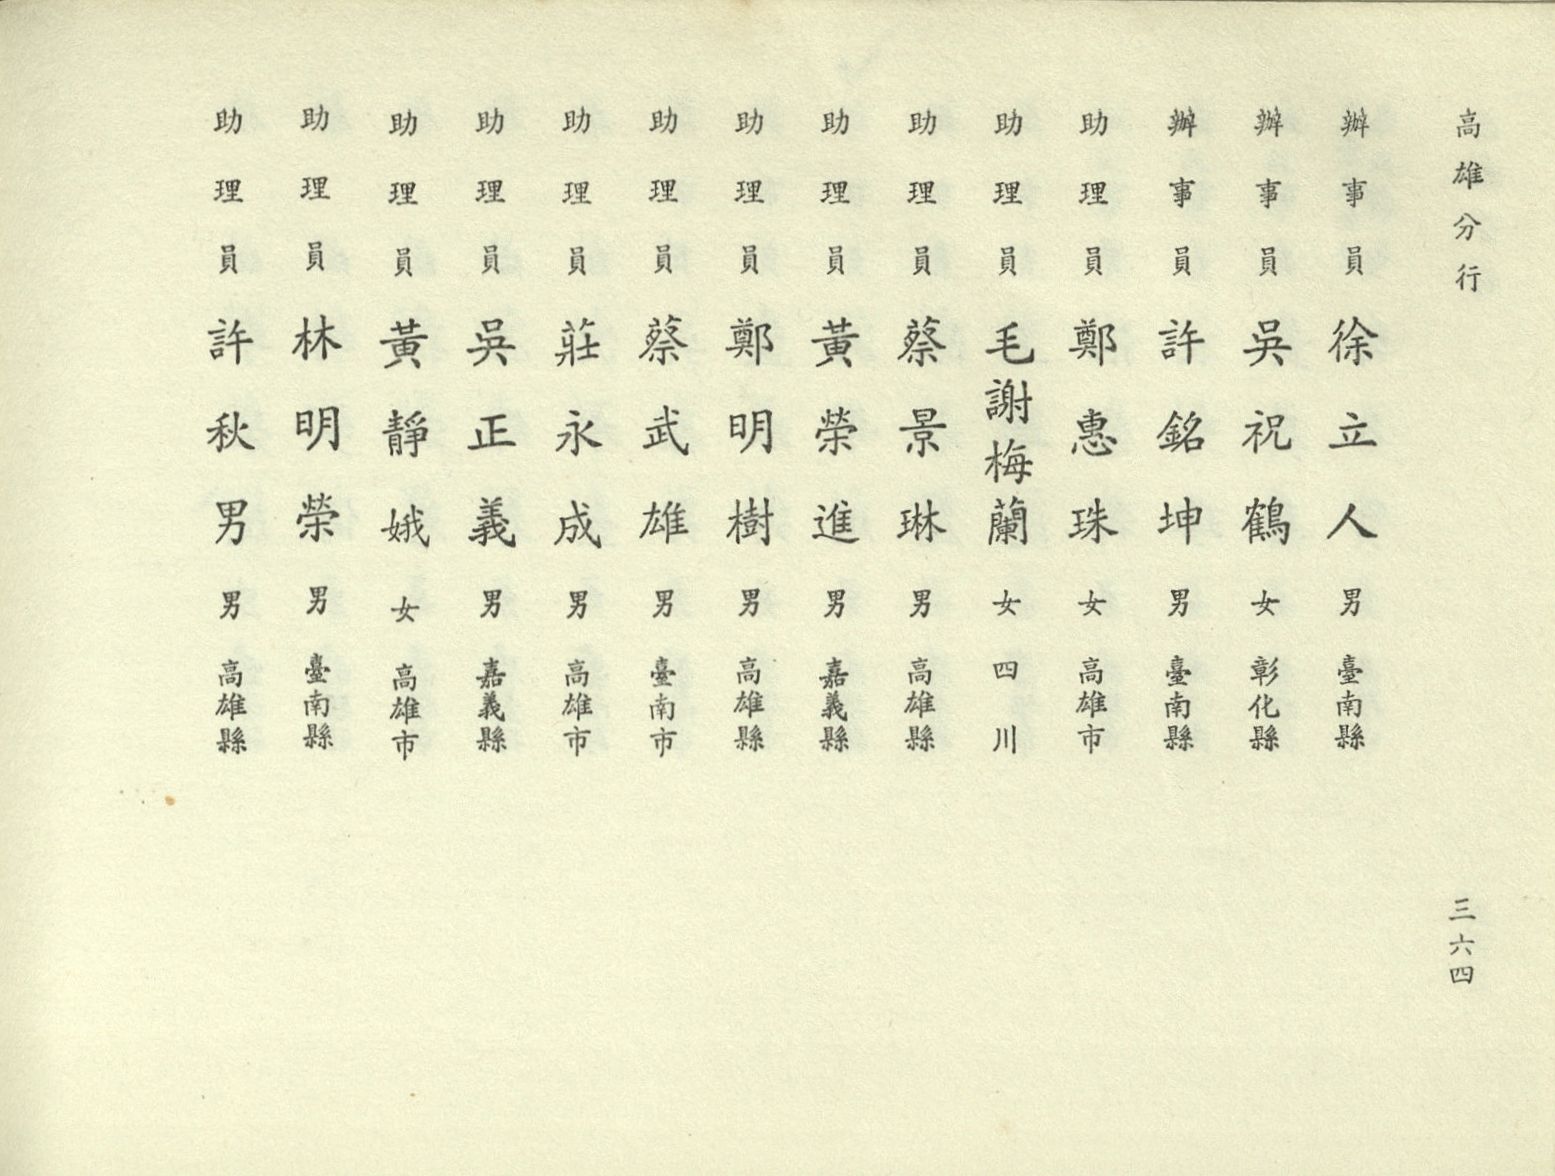 高雄分行
三六四
辦事員 徐立人 男 臺南縣
辦事員 吳祝鶴 女 彰化縣
辦事員 許銘坤 男 臺南縣
助理員 鄭惠珠 女 高雄市
助理員 毛謝梅蘭 女 四川
助理員 蔡景琳 男 高雄縣
助理員 黃榮進 男 嘉義縣
助理員 鄭明樹 男 高雄縣
助理員 蔡武雄 男 臺南市
助理員 莊永成 男 高雄市
助理員 吳正義 男 嘉義縣
助理員 黃靜娥 女 高雄市
助理員 林明榮 男 臺南縣
助理員 許秋男 男 高雄縣